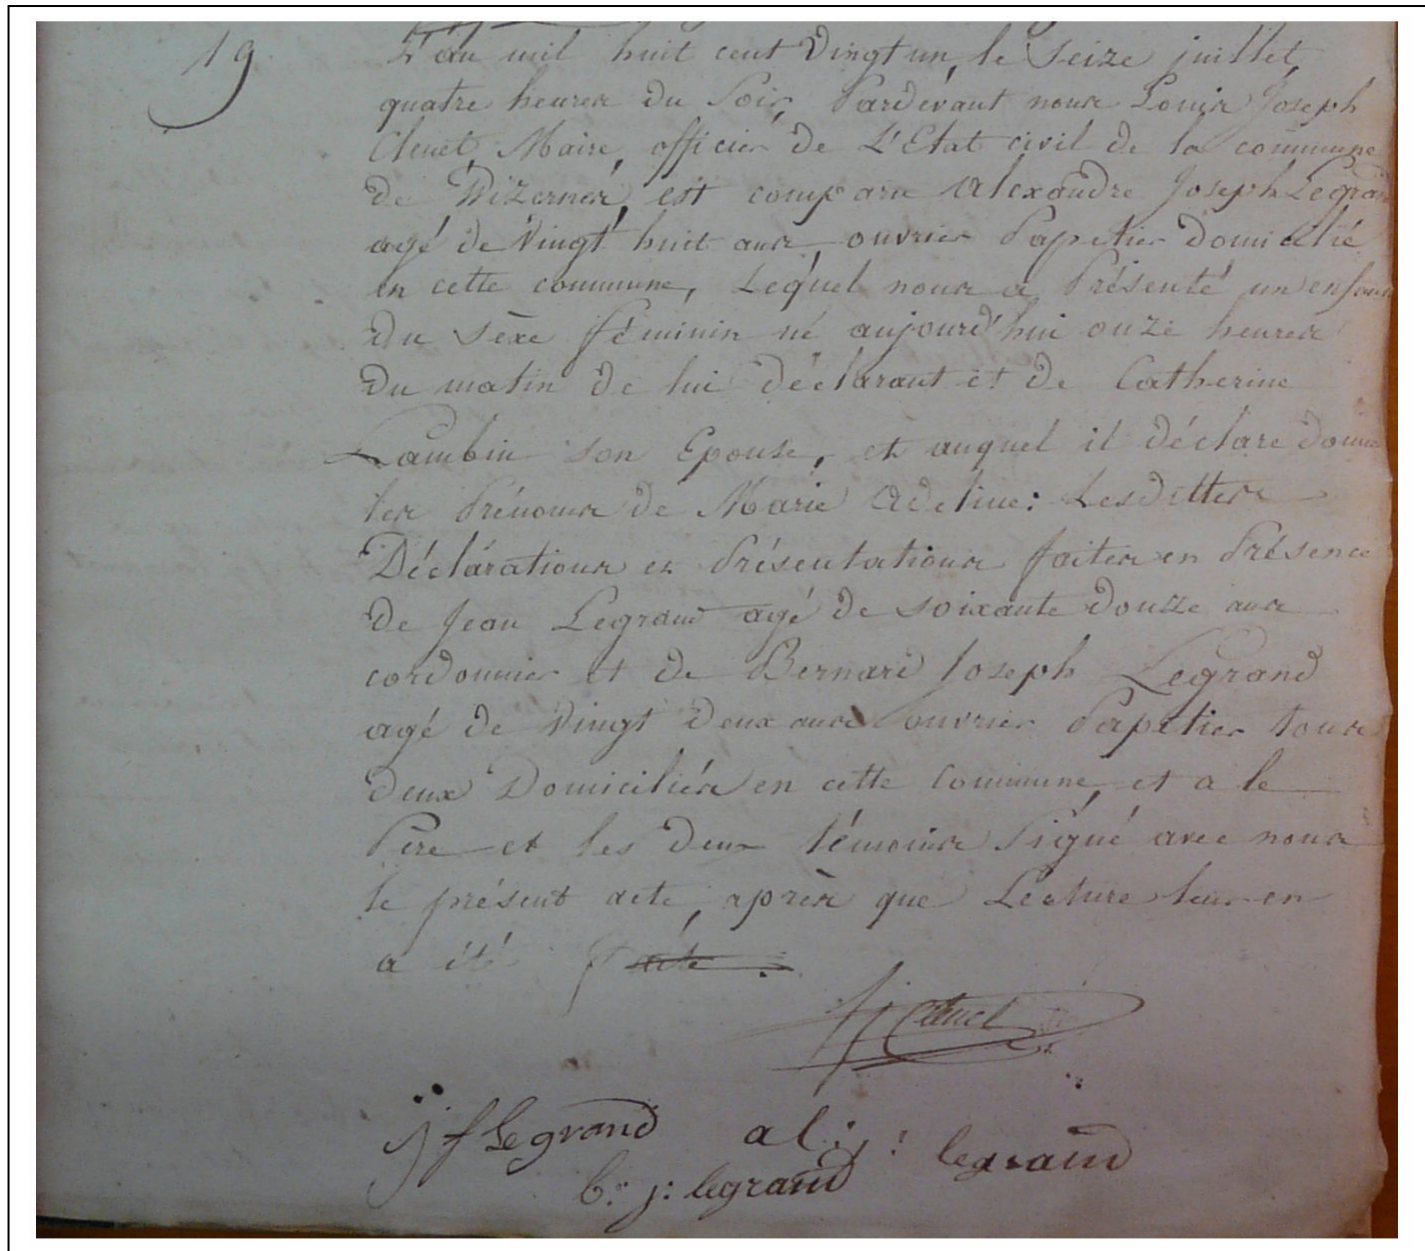 19
L'an mil huit cent vingt un, le seize juillet,
quatre heures du soir, Pardevant nous Louis Joseph
Clenet, Maire, officier de L'Etat civil de la commune
de Wizernes, est comparu Alexandre Joseph Legrand
agé de vingt huit ans, ouvrier Papetier domicilié
en cette commune, Lequel nous a Présenté un enfant
du sèxe féminin né aujourd'hui onze heures
du matin de lui déclarant et de Catherine
Lambin son Epouse, et auquel il déclare donner
les Prénoms de Marie Adeline: Lesdittes
Déclarations et Présentations faites en Présence
de Jean Legrand agé de soixante douze ans
cordonnier et de Bernard Joseph Legrand
agé de vingt deux ans ouvrier Papetier tous
deux Domiciliés en cette Commune, et a le
Père et les deux témoins signé avec nous
le présent acte, après que Lecture leur en
a été faite.
j f Legrand al: j: legrand
b: j: legrand